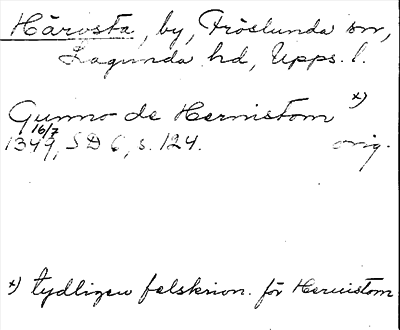 Härvsta, by, Fröslunda sn,
Lagunda hd, Upps. l.
Gunno de Hernistom x)
16/7
1349, SD 6, s. 124. orig.
x) tydligen felskrivn. för Hervistom